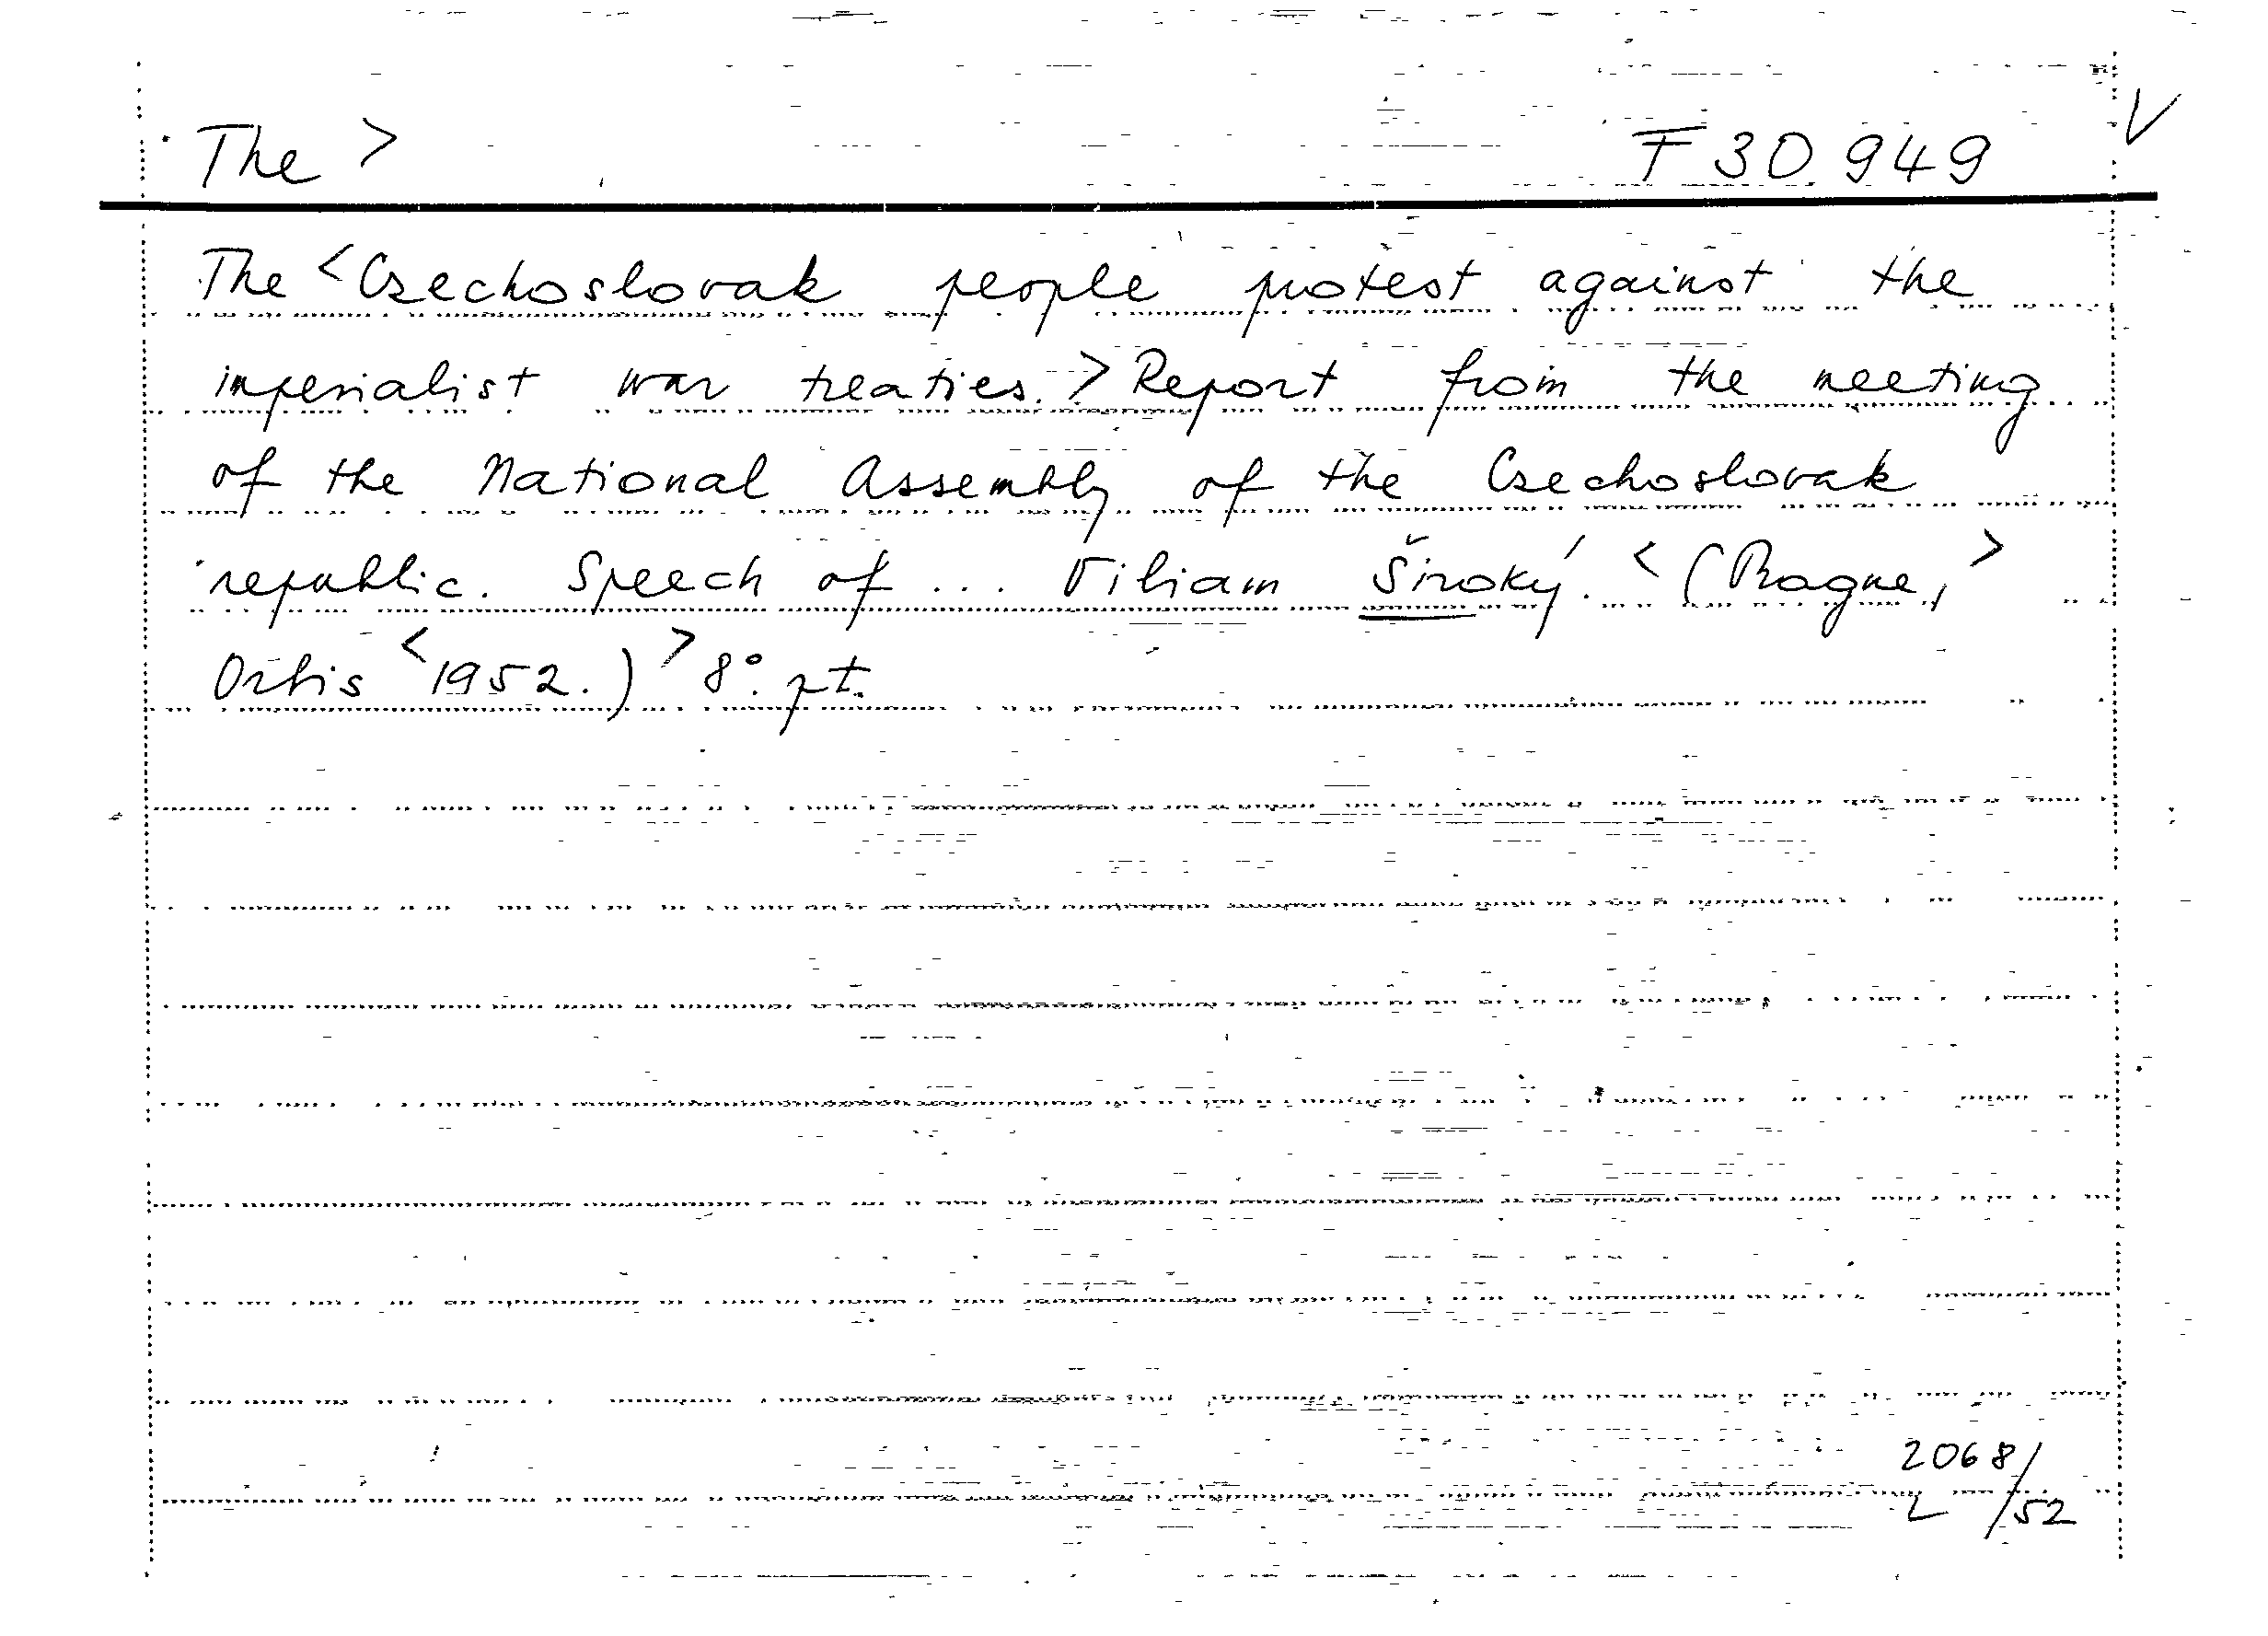 The > F 30.949 V
The <Czechoslovak people protest against the
imperialist war treaties.> Report from the meeting
of the National Assembly of the Czechoslovak
republic. Speech of ... Viliam Široký. <(Prague,>
Orbis <1952.)> 8°. pt.
2068/
L /52